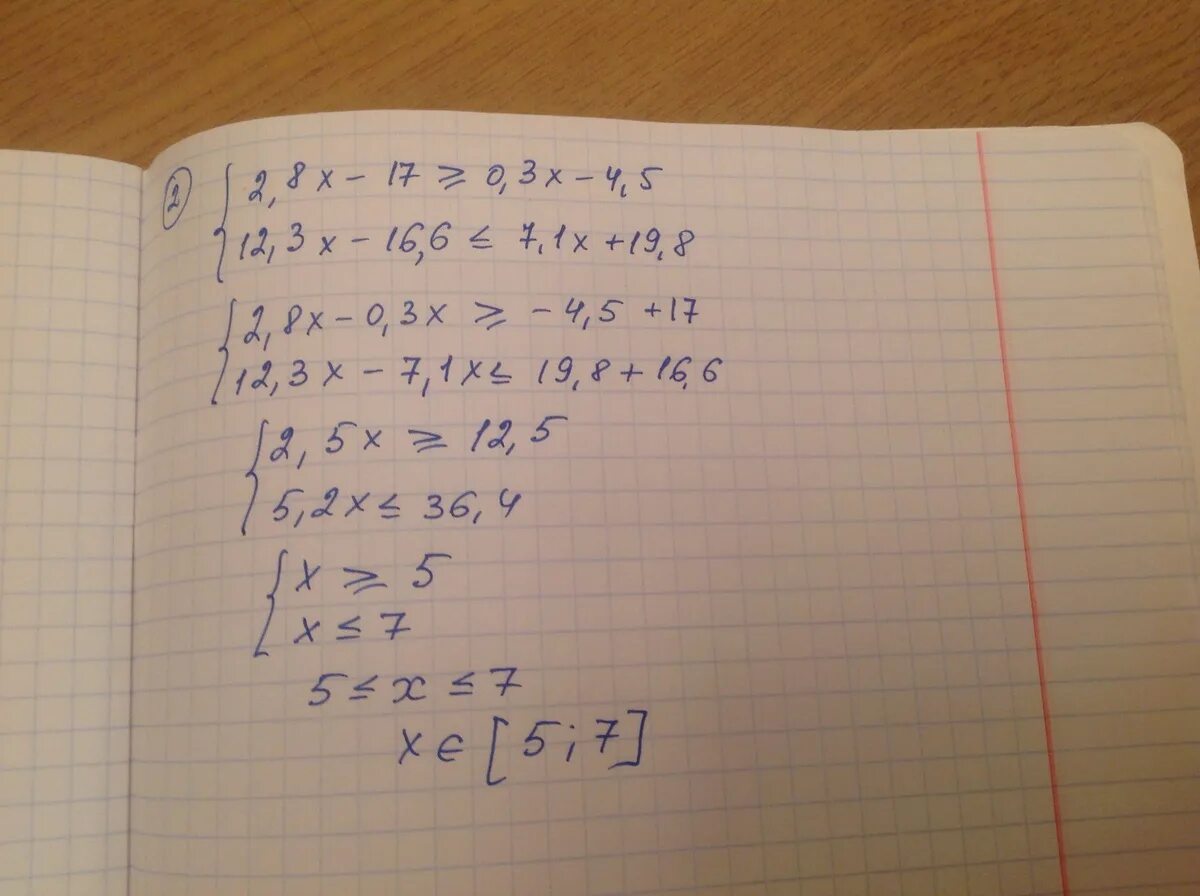 ② { 2,8x - 17 ≥ 0,3x - 4,5
12,3x - 16,6 ≤ 7,1x + 19,8
{ 2,8x - 0,3x ≥ -4,5 + 17
12,3x - 7,1x ≤ 19,8 + 16,6
{ 2,5x ≥ 12,5
5,2x ≤ 36,4
{ x ≥ 5
x ≤ 7
5 ≤ x ≤ 7
x ∈ [5;7]